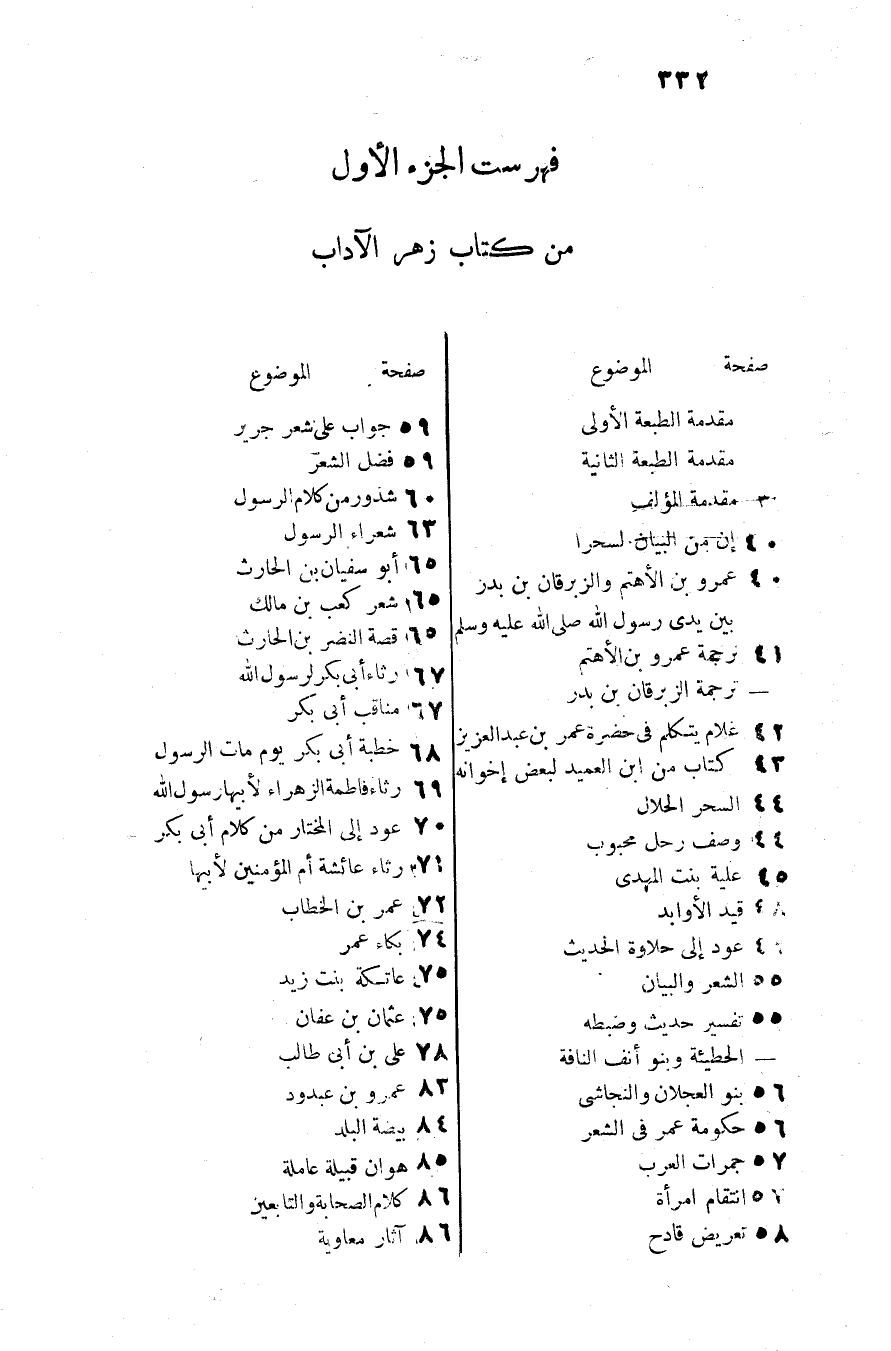 ٣٣٢
فهرست الجزء الأول
من كتاب زهر الآداب
صفحة الموضوع
مقدمة الطبعة الأولى
مقدمة الطبعة الثانية
مقدمة المؤلف
٤٠ إن من البيان لسحرا
٤٠ عمرو بن الأهتم والزبرقان بن بدر
بين يدى رسول الله صلى الله عليه وسلم
٤١ ترجمة عمرو بن الأهتم
— ترجمة الزبرقان بن بدر
٤٢ غلام يتكلم فى حضرة عمر بن عبد العزيز
٤٣ كتاب من ابن العميد لبعض إخوانه
٤٤ السحر الحلال
٤٤ وصف رحل محبوب
٤٥ علية بنت المهدى
قيد الأوابد
عود إلى حلاوة الحديث
٥٥ الشعر والبيان
٥٥ تفسير حديث وضبطه
— الحطيئة وبنو أنف الناقة
٥٦ بنو العجلان والنجاشى
٥٦ حكومة عمر فى الشعر
٥٧ جمرات العرب
٥٧ انتقام امرأة
٥٨ تعريض قادح
صفحة الموضوع
٥٩ جواب على شعر جرير
٥٩ فضل الشعر
٦٠ شذور من كلام الرسول
٦٣ شعراء الرسول
٦٥ أبو سفيان بن الحارث
٦٥ شعر كعب بن مالك
٦٥ قصة النضر بن الحارث
٦٧ رثاء أبى بكر لرسول الله
٦٧ مناقب أبى بكر
٦٨ خطبة أبى بكر يوم مات الرسول
٦٩ رثاء فاطمة الزهراء لأبيها رسول الله
٧٠ عود إلى المختار من كلام أبى بكر
٧١ رثاء عائشة أم المؤمنين لأبيها
٧٢ عمر بن الخطاب
٧٤ بكاء عمر
٧٥ عاتكة بنت زيد
٧٥ عثمان بن عفان
٧٨ على بن أبى طالب
٨٣ عمرو بن عبدود
٨٤ بيضة البلد
٨٥ هوان قبيلة عاملة
٨٦ كلام الصحابة والتابعين
٨٦ آثار معاوية